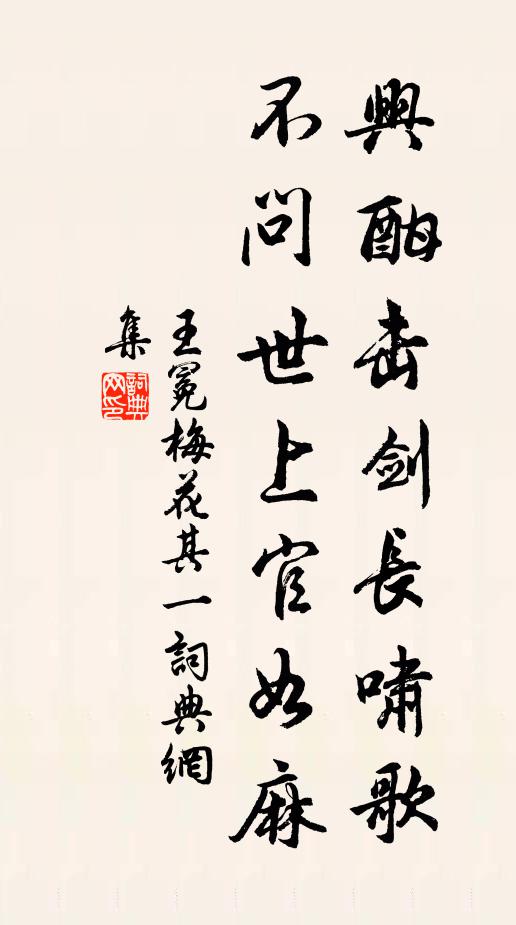 興酣击剑長嘯歌
不問世上官如麻
王冕梅花其一詞典網
集
詞典
网印